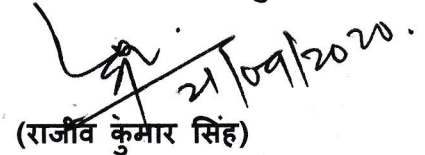 21/09/2020.
(राजीव कुंमार सिंह)